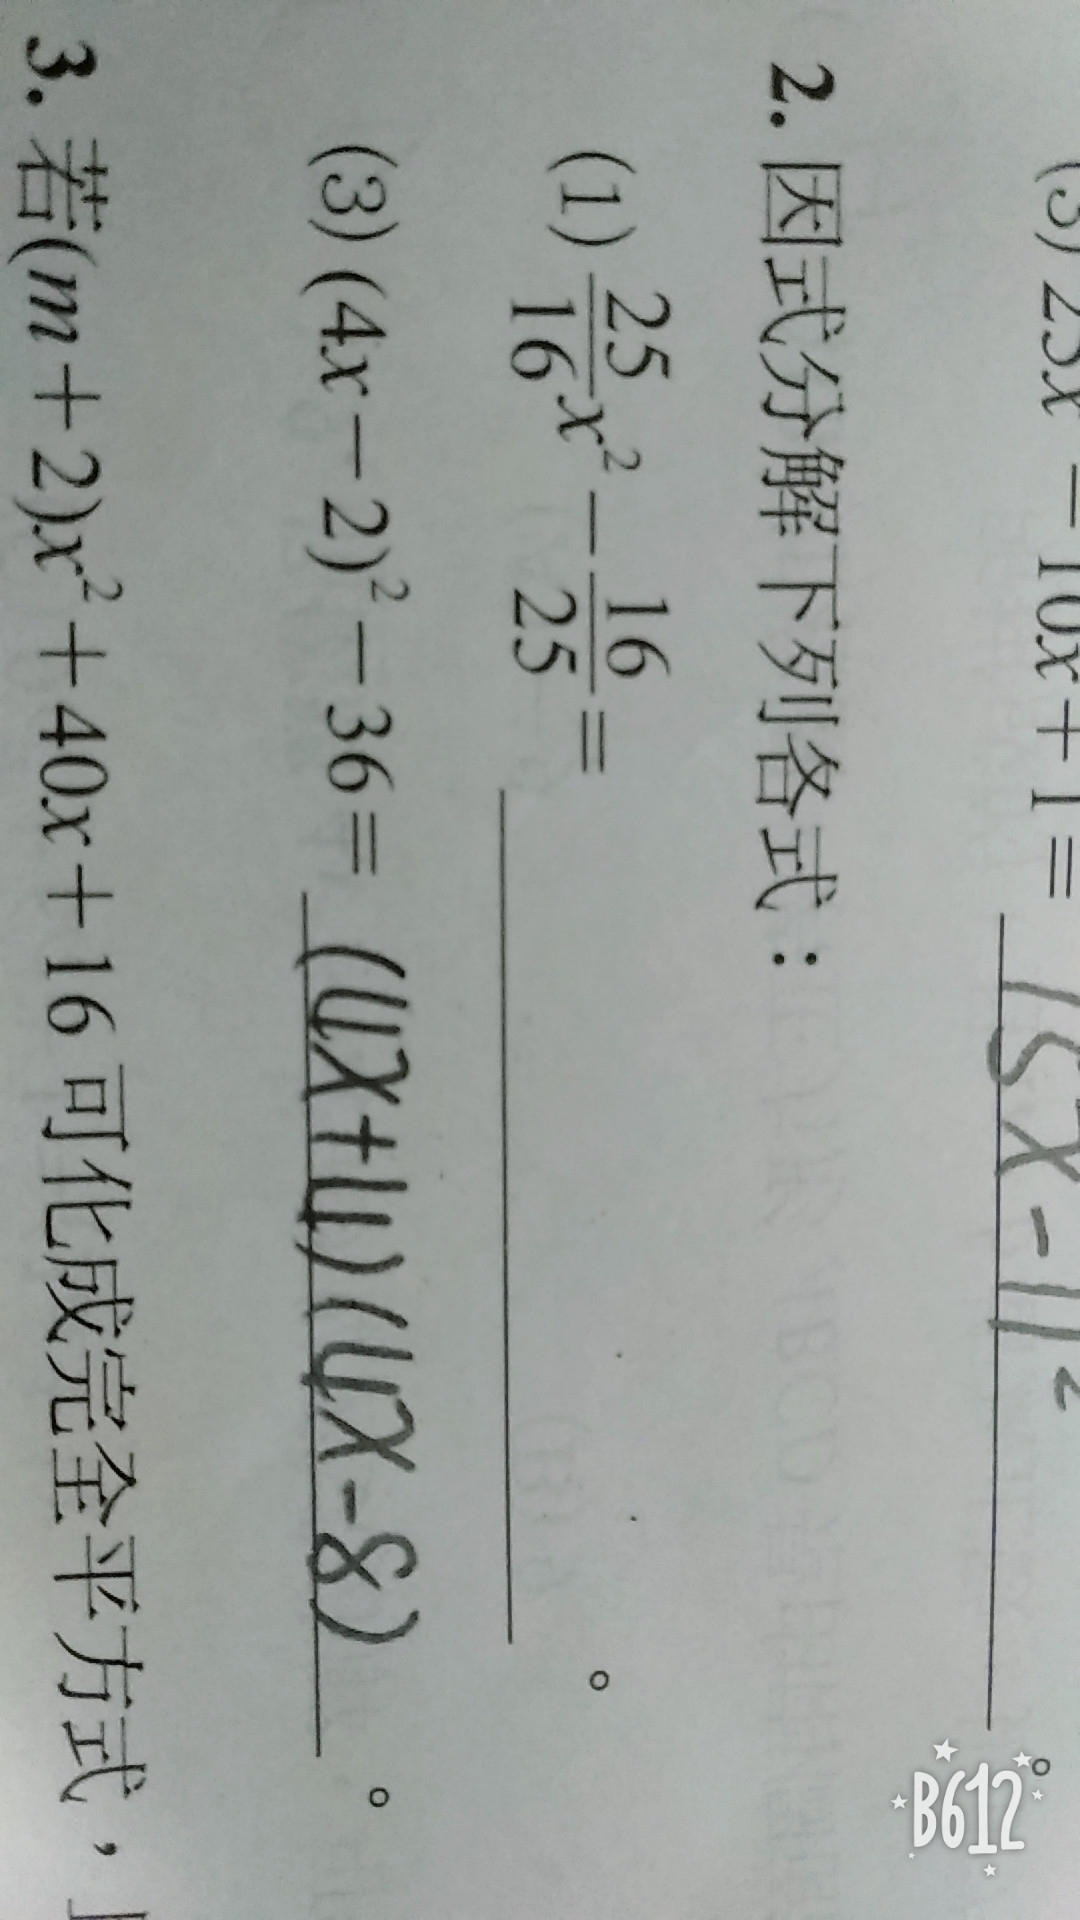 (3) 25x² - 10x + 1 = (5x-1)² 。
2. 因式分解下列各式：
(1) 25/16 x² - 16/25 = 。
(3) (4x - 2)² - 36 = (4x+4)(4x-8) 。
3. 若(m + 2)x² + 40x + 16 可化成完全平方式，
B612